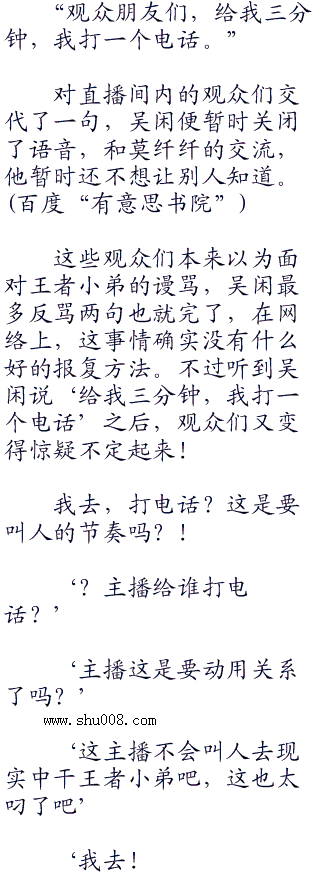 “观众朋友们，给我三分
钟，我打一个电话。”
对直播间内的观众们交
代了一句，吴闲便暂时关闭
了语音，和莫纤纤的交流，
他暂时还不想让别人知道。
(百度“有意思书院”)
这些观众们本来以为面
对王者小弟的谩骂，吴闲最
多反骂两句也就完了，在网
络上，这事情确实没有什么
好的报复方法。不过听到吴
闲说‘给我三分钟，我打一
个电话’之后，观众们又变
得惊疑不定起来！
我去，打电话？这是要
叫人的节奏吗？！
‘？主播给谁打电
话？’
‘主播这是要动用关系
了吗？’
www.shu008.com
‘这主播不会叫人去现
实中干王者小弟吧，这也太
叼了吧’
‘我去！